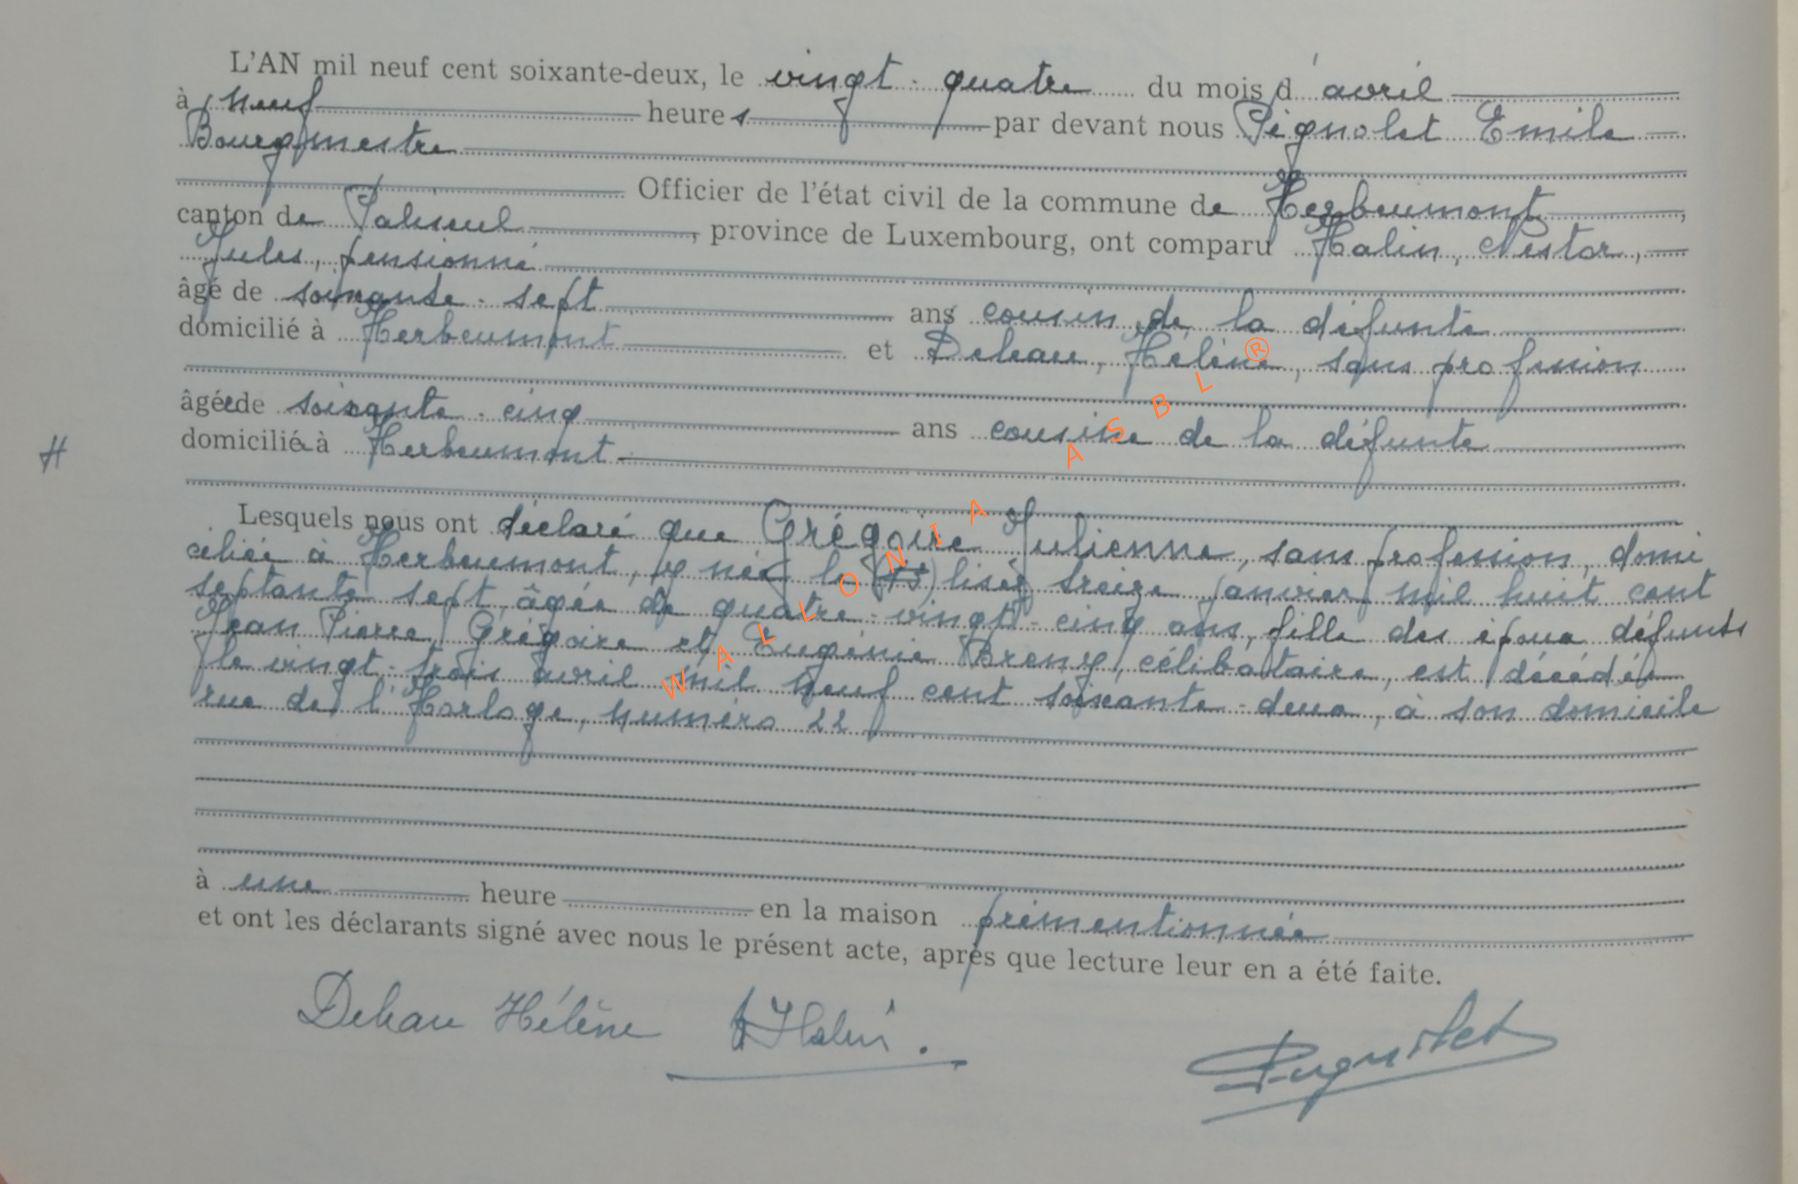 L'AN mil neuf cent soixante-deux, le vingt-quatre du mois d'avril
à neuf heures par devant nous Pignolet Emile
Bourgmestre
Officier de l'état civil de la commune de Herbeumont,
canton de Paliseul, province de Luxembourg, ont comparu Halin, Nestor,
Jules, pensionné
âgé de soixante-sept ans cousin de la défunte
domicilié à Herbeumont et Dehau, Hélène, sans profession
âgée de soixante-cinq ans cousine de la défunte
domiciliée à Herbeumont
H
Lesquels nous ont déclaré que Grégoire Julienne, sans profession, domi
ciliée à Herbeumont, y née le () lisez treize janvier mil huit cent
septante sept, âgée de quatre-vingt-cinq ans, fille des époux défunts
Jean Pierre Grégoire et Eugénie Breny, célibataire, est décédée
le vingt-trois avril mil neuf cent soixante-deux, à son domicile
rue de l'Horloge, numéro 22
à une heure en la maison prémentionnée
et ont les déclarants signé avec nous le présent acte, après que lecture leur en a été faite.
Dehau Hélène Halin. Pignolet
WALLONIA ASBL ®